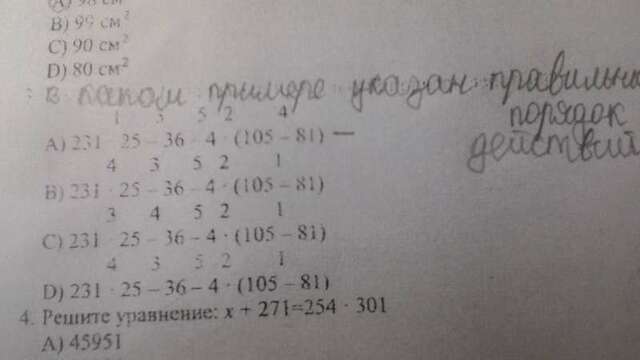 B) 99 см²
C) 90 см²
D) 80 см²
В каком примере указан
порядок
действий
1 3 5 2 4
A) 231 25 – 36 4 (105 – 81) —
4 3 5 2 1
B) 231 25 36 4 · (105 – 81)
3 4 5 2 1
C) 231 25 – 36 – 4 · (105 – 81)
4 3 5 2 1
D) 231 · 25 – 36 – 4 · (105 – 81)
4. Решите уравнение: x + 271=254 · 301
A) 45951